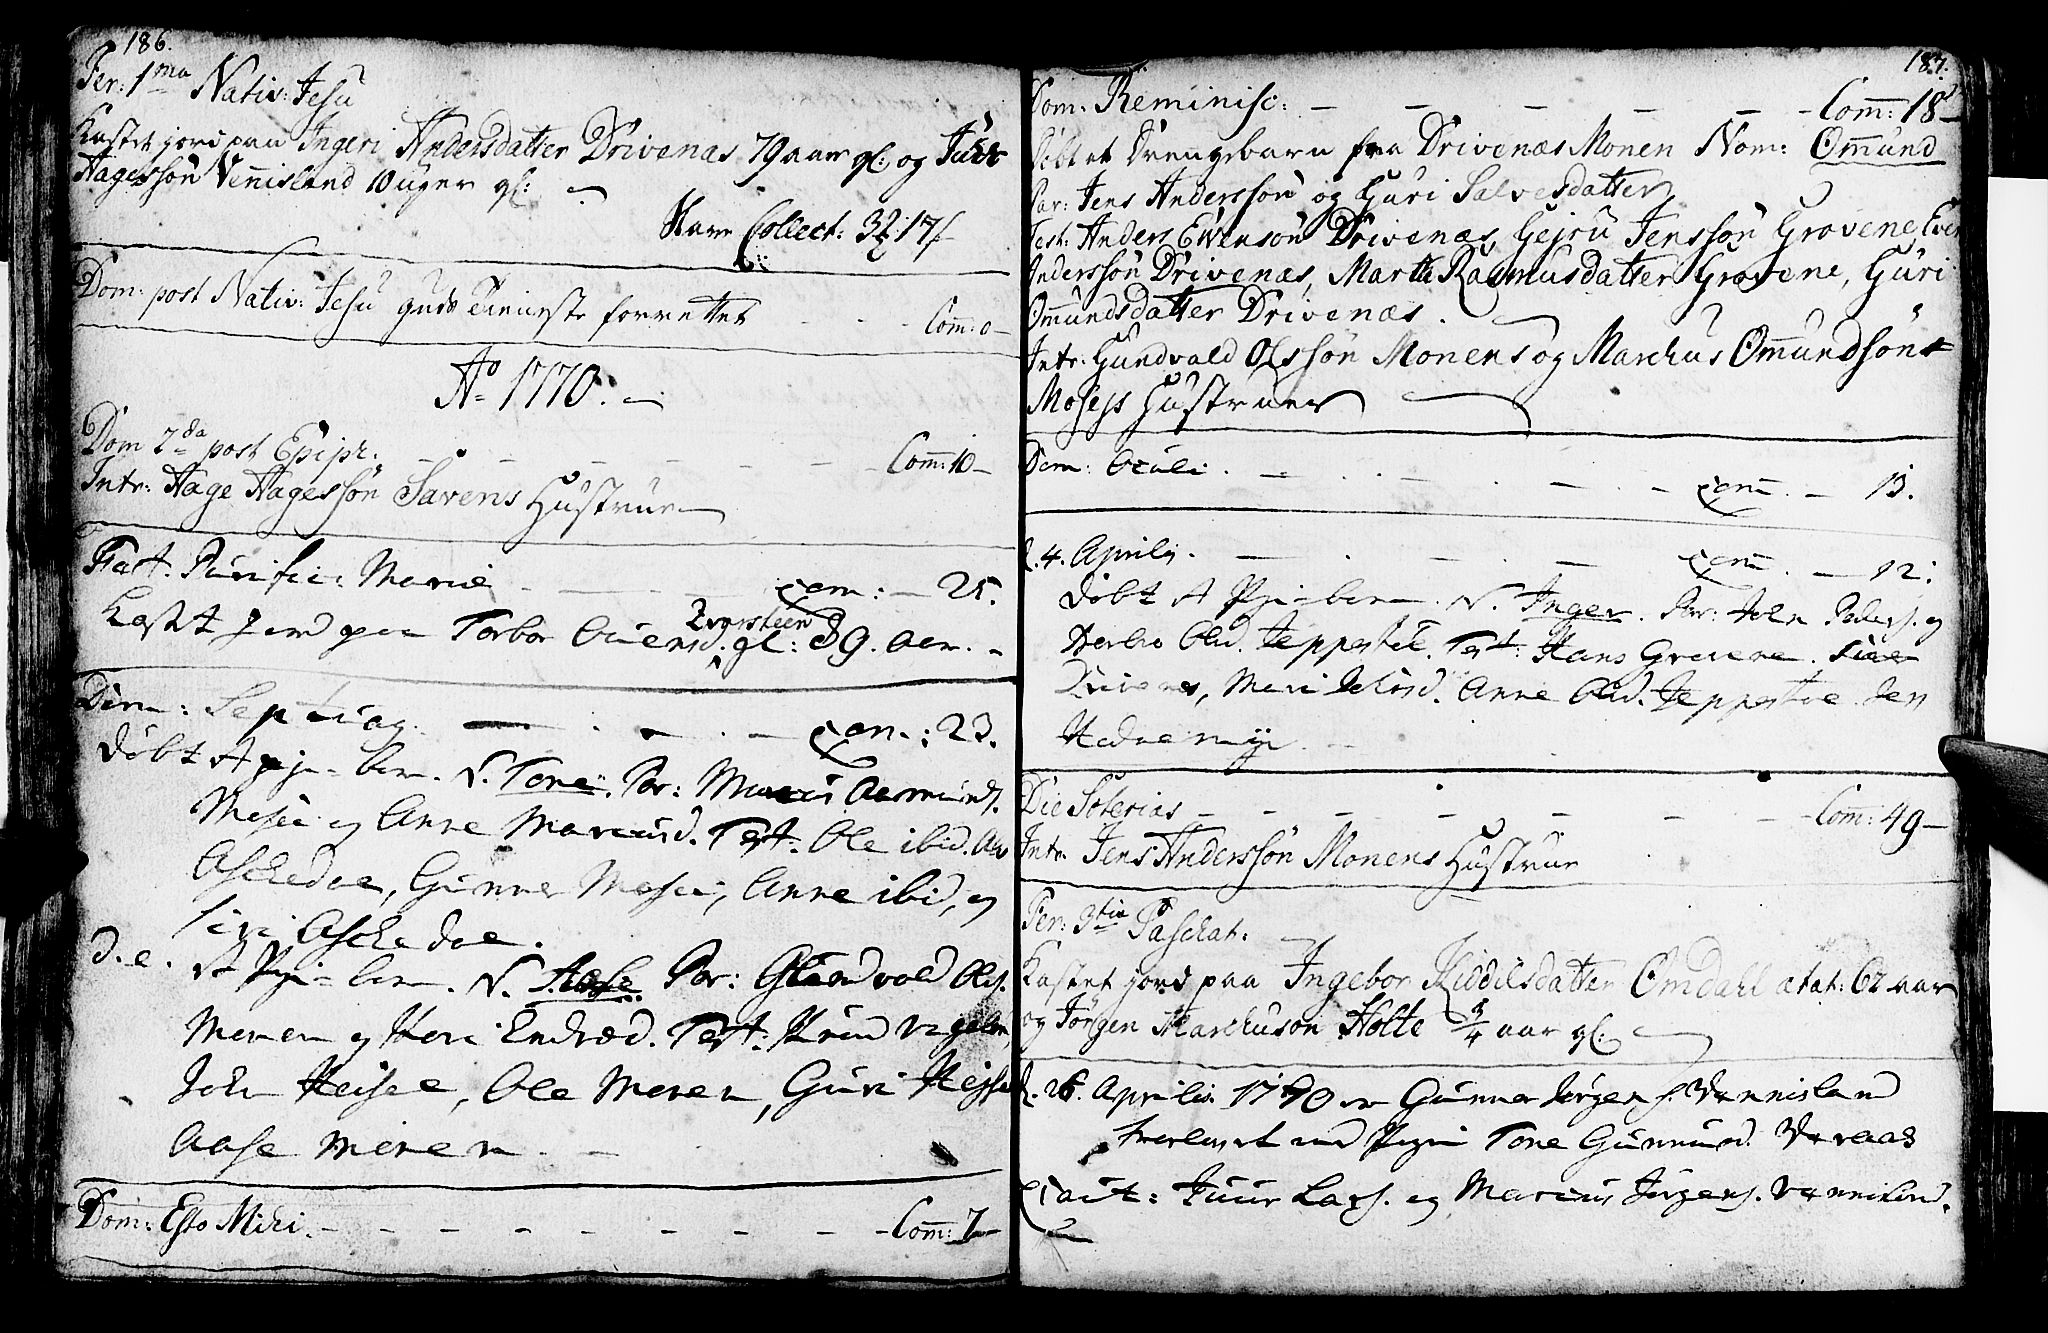 186.
Fer: 1ma Nativ: Jesu
Kastet jord paa Ingeri Andersdatter Drivenæs 79 aar gl: og
Hagessøn Vennisland 10 uger gl:
Tavle Collect: 3
Dom: post Nativ: Jesu Guds Tieneste forrettet - - - Com: 0 -
Ao 1770.
Dom 2da post Epiph: - - - - - Com: 10 -
Intr: Hage Hagessøn Savens Hustrue
Fæst. Purific: Mariæ - - - Com: - 25.
Kast Jord paa Torbor gl: 89. Aar. -
Dom: Septuag. - - - Com: 23.
Døbt et Pige-barn. N. Tone. Par: Marcus Aasmunds.
Mosei og Anne Marcusd. Test. Ole ibid.
Aschedae, Gunner Mosei, Anne ibid, og
Siri Aschedae.
D. e. et Pige-barn. N. Aase. Par: Gundvald Ols.
Monen og Endred. Test: Vigelan
John Heisee, Ole Monen, Guri
Aase Monen. -
Dom: Esto Mihi. - - - - - - - Com: 7 -
187.
Dom: Reminisc: - - - - - Com: 18 -
Døbt et Drengebarn fra Drivenæs Monen Nom: Omund
Par: Jens Anderssøn og Guri Salvesdatter
Test: Anders Evensøn Drivenæs, Jenssøn Grovene Even
Anderssøn Drivenæs, Martha Rasmusdatter Grovene, Guri
Omundsdatter Drivenæs.
Intr: Gundvald Olssøn Monens og Marchus Omundsøns
Moseys Hustruer
Dom: Oculi. - - - - Com. - 13.
d. 4. Aprilis. - - - Com. - 12.
Døbt et Pige-barn. N. Inger. Par: John Peders. og
Olsd. Teppestøe. Test: Hans Grovene.
Drivenes, Mari Anne Olsd. Teppestøe. Jens
Die Soterias - - - - - - Com: 49 -
Intr. Jens Anderssøn Monens Hustrue
Fer: 3tia Paschat:
Kastet jord paa Ingebor Kiddilsdatter Omdahl ætat: 62 aar
og Jørgen Marchusøn Holte 3/4 aar gl:
d. 26. Aprilis 1770 er Gunner Jørgens. Vennisland
Trolovet med Pigen Tone Gunnusd. Veraas
Caut: Juur Lars. og Marcus Jørgens. Vennisland.